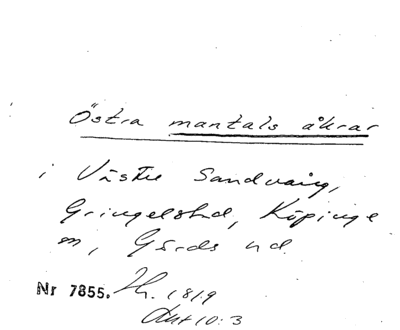 Östra mantals åkrar
i Västra Sandvång,
Gringelstad, Köpinge
sn, Gärds hd.
Nr 7855. Jh. 1819
Akt 10:3